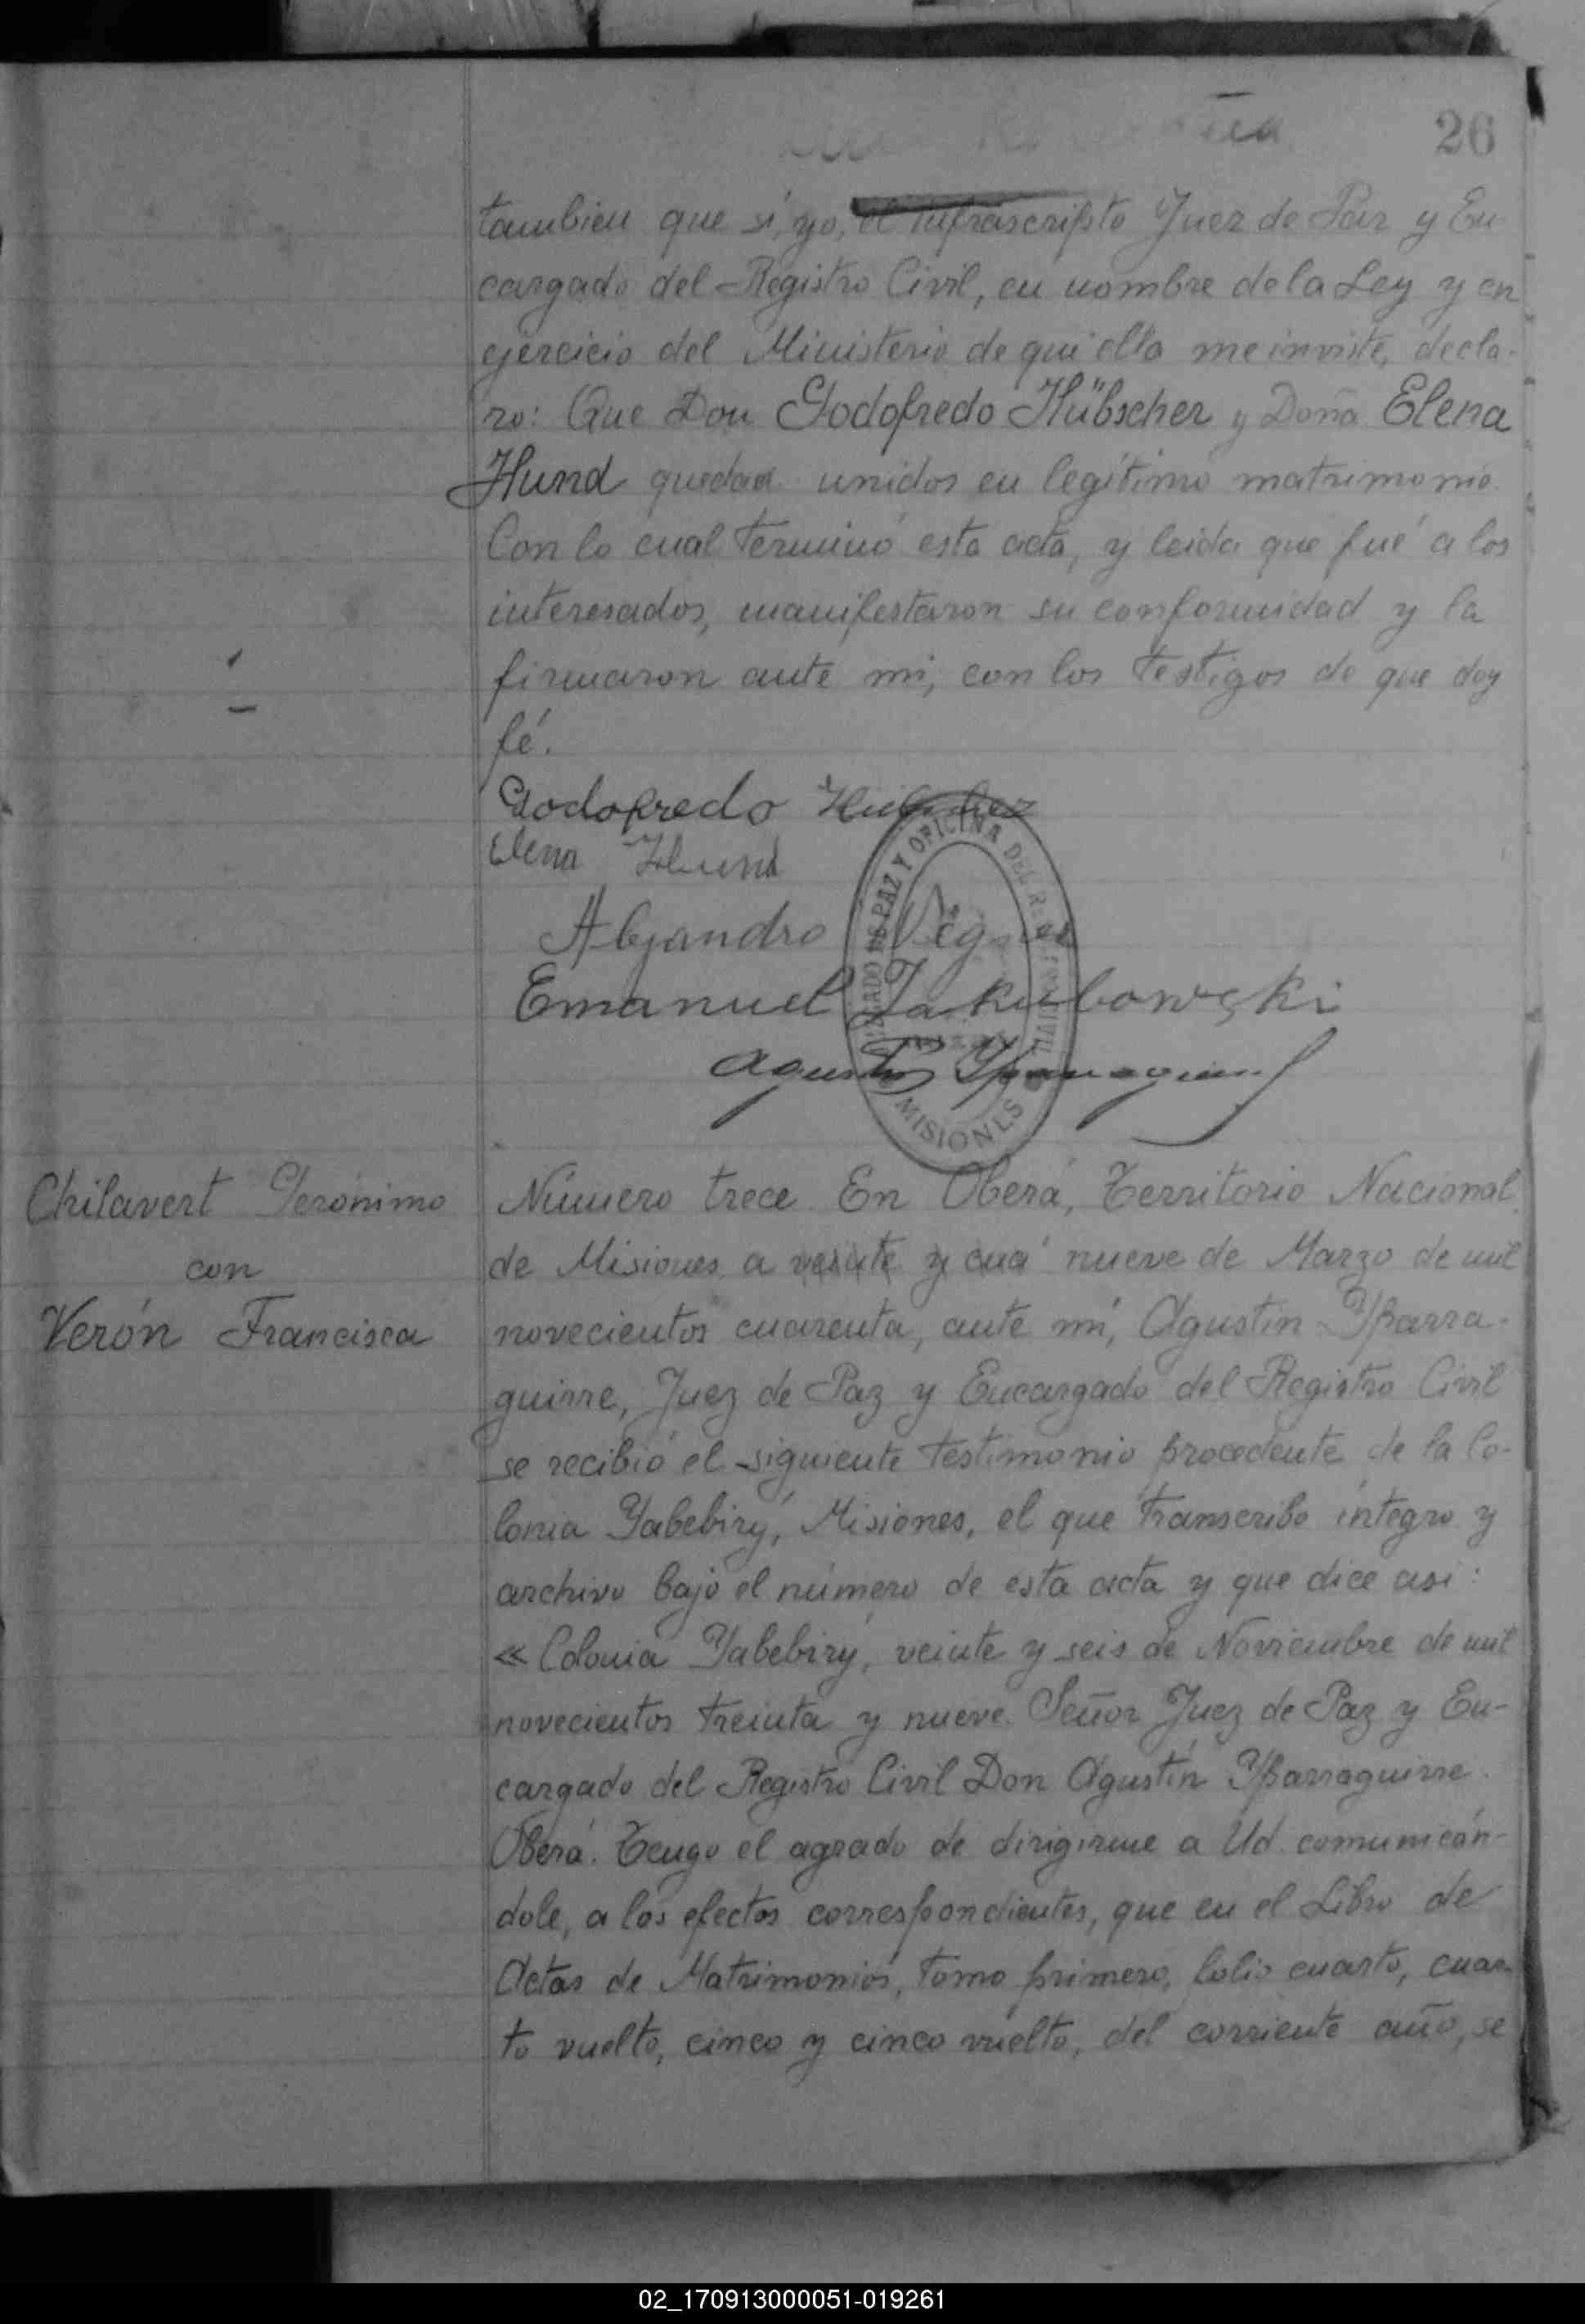 26
tambien que sí, yo, el infrascripto Juez de Paz y En
cargado del Registro Civil, en nombre de la Ley y en
ejercicio del Ministerio de qui ella me inviste, decla-
ro: Que Don Godofredo Hübscher y Doña Elena
Hund quedan unidos en legítimo matrimonio.
Con lo cual terminó esta acta, y leida que fué a los
interesados, manifestaron su conformidad y la
firmaron ante mi, con los testigos de que doy
fé.
Godofredo
Elena Hund
Alejandro
Emanuel Jakubowski
JUZGADO DE PAZ Y OFICINA DEL REGISTRO CIVIL
MISIONES
Chilavert Gerónimo
con
Verón Francisca
Número trece. En Oberá, Territorio Nacional
de Misiones a veinte y cua nueve de Marzo de mil
novecientos cuarenta, ante mi, Agustín Yparra-
guirre, Juez de Paz y Encargado del Registro Civil
se recibió el siguiente testimonio procedente de la Co-
lonia Yabebiry, Misiones, el que transcribo integro y
archivo bajo el número de esta acta y que dice asi:
« Colonia Yabebiry, veinte y seis de Noviembre de mil
novecientos treinta y nueve. Señor Juez de Paz y En-
cargado del Registro Civil Don Agustín Yparraguirre.
Oberá. Tengo el agrado de dirigirme a Ud. comunicán-
dole, a los efectos correspondientes, que en el Libro de
Actas de Matrimonios, tomo primero, folio cuarto, cuar-
to vuelto, cinco y cinco vuelto, del corriente año, se
02_170913000051-019261